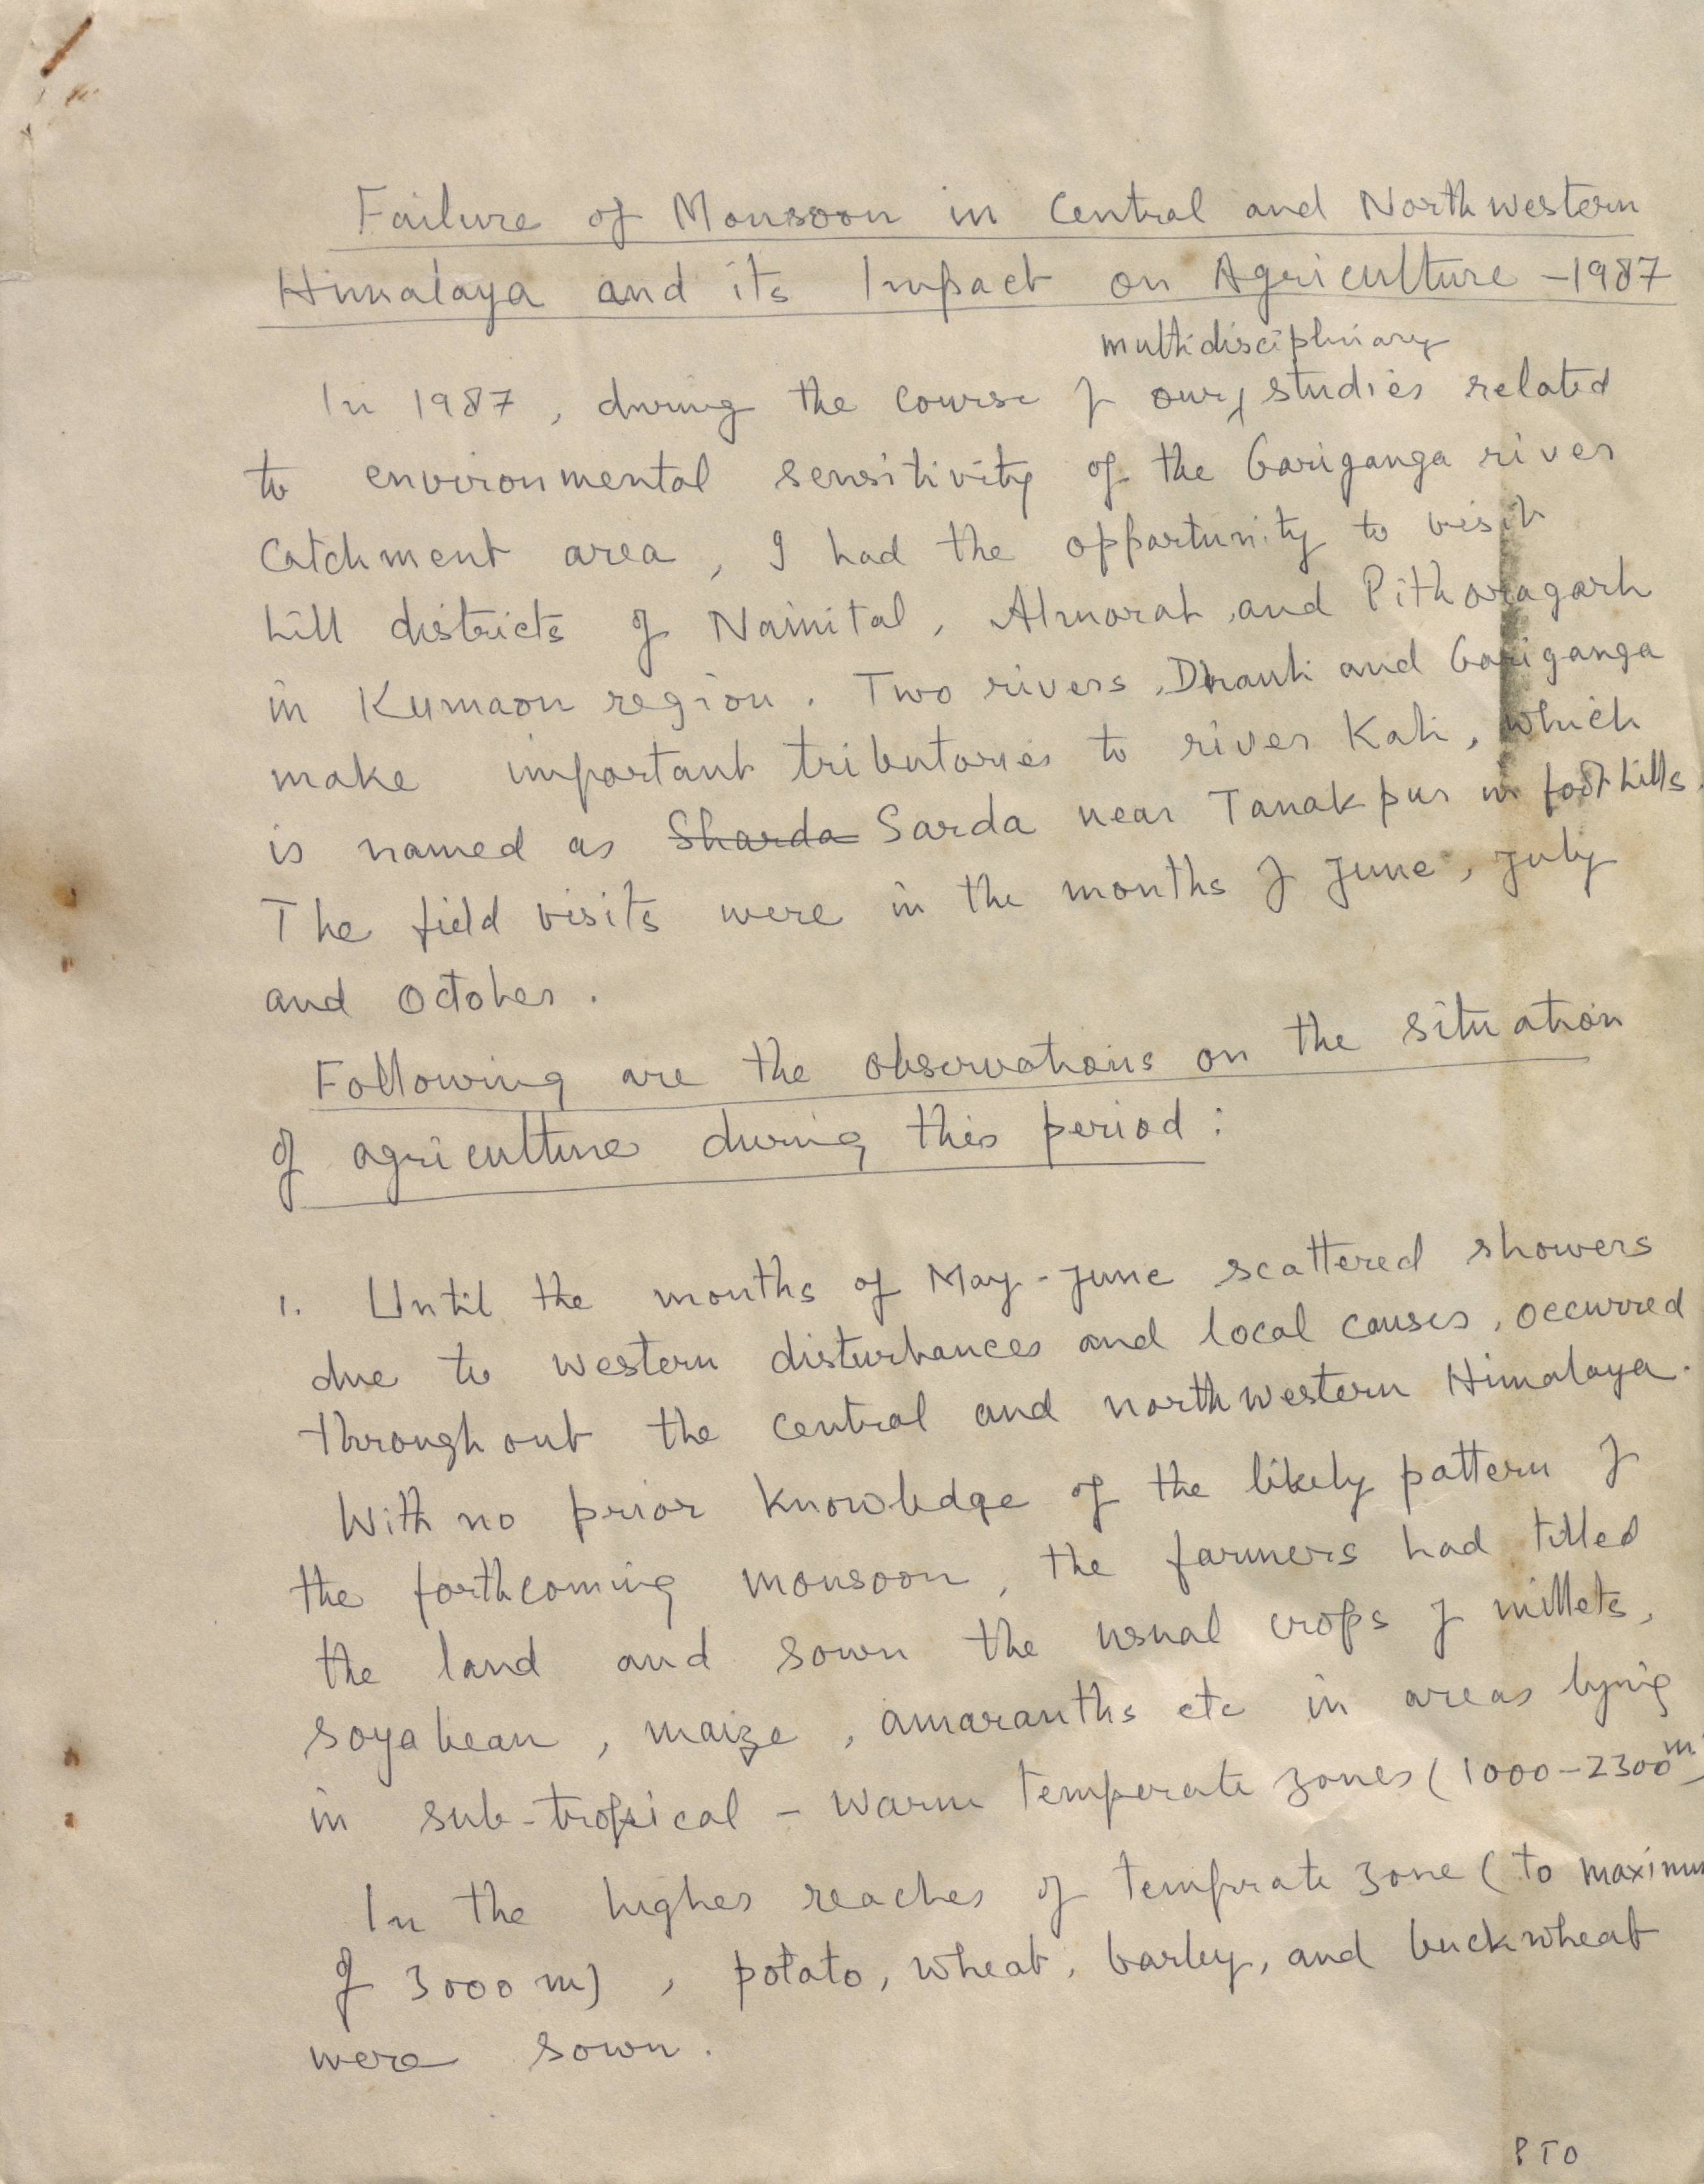 Failure of Monsoon in Central and Northwestern
Himalaya and its Impact on Agriculture - 1987
multidisciplinary
In 1987, during the course of our studies related
to environmental sensitivity of the Gariganga river
catchment area, I had the opportunity to visit
hill districts of Nainital, Almorah, and Pithoragarh
in Kumaon region. Two rivers, Dhauli and Gariganga
make important tributories to river Kali, which
is named as Sharda Sarda near Tanakpur in foothills.
The field visits were in the months of June, July
and October.
Following are the observations on the situation
of agriculture during this period:
1. Until the months of May-June scattered showers
due to western disturbances and local causes, occurred
throughout the central and northwestern Himalaya.
With no prior knowledge of the likely pattern of
the forthcoming monsoon, the farmers had tilled
the land and sown the usual crops of millets,
soyabean, maize, amaranths etc in areas lying
in sub-tropical - warm temperate zones (1000-2300 m)
In the higher reaches of temperate zone (to maximum
of 3000 m), potato, wheat, barley, and buckwheat
were sown.
PTO